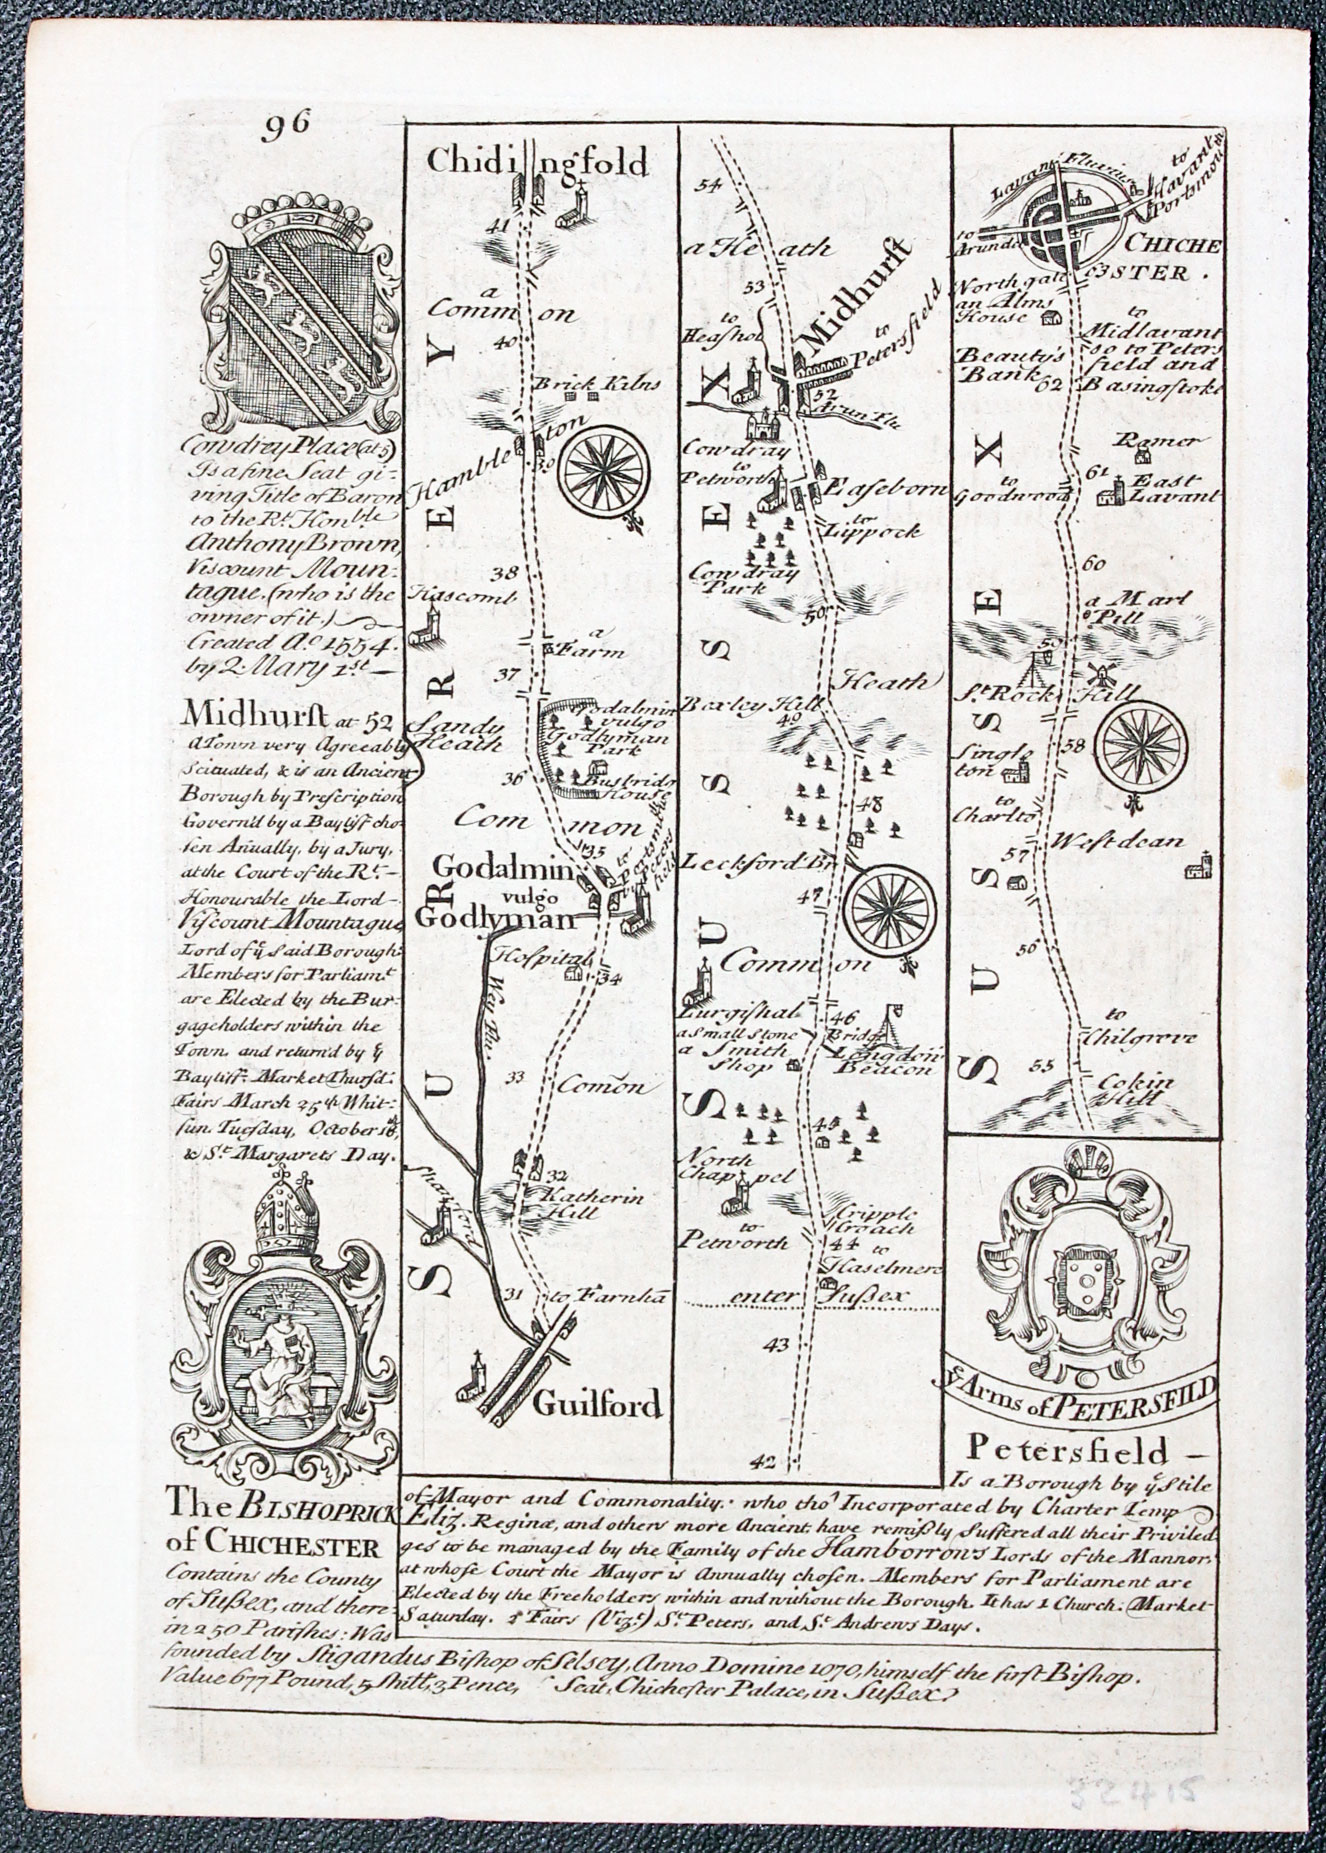 96
Cowdrey Place (at 5)
Is a fine Seat gi-
ving Title of Baron
to the Rt. Honble
Anthony Brown,
Viscount Moun-
tague, (who is the
owner of it.)
Created Ao. 1554.
by Q. Mary 1st
Midhurst at 52
A Town very Agreeably
Scituated, & is an Ancient
Borough by Prescription
Govern'd by a Bayliff cho-
sen Anually, by a Jury,
at the Court of the Rt.
Honourable the Lord
Viscount Mountague
Lord of ye said Borough
Members for Parliamt
are Elected by the Bur-
gageholders within the
Town, and return'd by ye
Bayliff: Market Thursd:
Fairs March 25th Whit-
sun Tuesday, October
& St. Margarets Day.
The BISHOPRICK
of CHICHESTER
Contains the County
of Sussex, and there-
in 250 Parishes: Was
founded by Stigandus Bishop of Selsey, Anno Domine 1070, himself the first Bishop.
Value 677 Pound, 5 shill: 3 Pence, Seat, Chichester Palace, in Sussex
Chidingfold
41
a
Common
40
Brick Kilns
Hambleton
39
38
Hascomb
a
Farm
37
Godalmin
vulgo
Godlyman
Park
Sandy
Heath
36
Busbridg
House
Common
35
to Portsmouth
Peters
field
Godalmin
vulgo
Godlyman
Hospital
34
Wey Flu.
33
Comon
32
Katherin
Hill
Shalford
31
to Farnha
Guilford
SURREY
54
a Heath
53
to
Heashot
Midhurst
to
Petersfield
52
Arun Flu
Cowdray
to
Petworth
Easeborn
to
Lippock
Cowdray
Park
50
Heath
Bexley Hill
49
48
Leckford Br
47
Common
Lurgishal
46
a Small Stone
Bridg
a Smith
Shop
Longdon
Beacon
45
North
Chappel
Cripple
Croach
to
Petworth
44
to
Haselmere
enter Sussex
43
42
SUSSEX
Lavant Fluvius
to
Havant &
Portsmouth
to
Arundel
CHICHE
STER.
63
North gate
an Alms
House
to
Midlavant
so to Peters
field and
Basingstoke
Beauty's
Bank
62
Ramer
61
to
Goodwood
East
Lavant
60
a Marl
Pitt
59
St. Rock Hill
58
Single
ton
to
Charlto
Westdean
57
56
to
Chilgrove
55
Cokin
Hill
SUSSEX
ye Arms of PETERSFEILD
Petersfield
Is a Borough by ye Stile
of Mayor and Commonality. who tho' Incorporated by Charter Temp
Eliz. Reginæ, and others more Ancient, have remissly Suffered all their Priviled
ges to be managed by the Family of the Hamborrow's Lords of the Mannor,
at whose Court the Mayor is Annually chosen. Members for Parliament are
Elected by the Freeholders within and without the Borough. It has 1 Church: Market
Saturday. Fairs (Vizt.) St. Peters, and St. Andrews Days.
32415